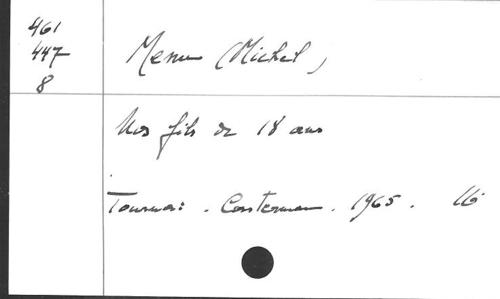 461
447
8
Menu (Michel)
Nos fils de 18 ans
Tournai . Casterman . 1965 . 16